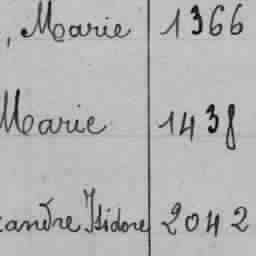 , Marie 1366
Marie 1438
candre Isidore 2042